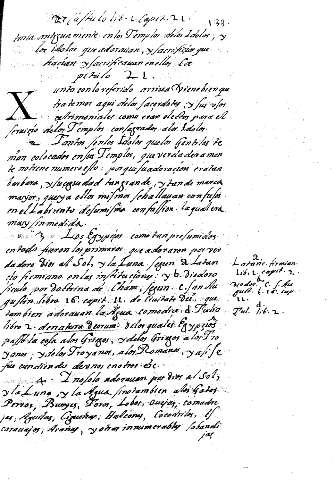 Capitulo lib. 2. capit. 21. 138.
tenia antiguamente en los Templos de los Idolos, y
los idolos que adorauan, y sacrificios que
hacian, y sacrificauan en ellos. Ca
pitulo 21.
Xunto con lo referido arriua Viene bien que
tratemos aqui de los sacerdotes, y sus
como eran electos para el
seruicio de los Templos consagrados a los Idolos.
Tantos son los Idolos que los Gentiles te
nian colocados en sus Templos, que verdaderamen
te no tiene numero: porque su adoracion era tan
barbara, y su cequedad tan grande, y tan de marca
mayor, que ya ellos mismos se hallauan confusos
en el Laberinto de su misma confusion. La qual era
muy sin medida.
Los Egypcios como tan presumidos
en todo fueron los primeros que adoraron por ver
dadero dios al Sol, y la Luna, segun Latan
cio firmiano en las instituciones: y b. Diodoro
siculo por doctrina de Cham, segun c. san Au
gustin libro 16. capit. 11. de ciuitate Dei. que
tambien adorauan la Agua como dice d. Tulio
libro 2. de natura deorum: de los quales Egypcios
paso la cosa a los Griegos, y de los Griegos a los Tro
yanos, y de los Troyanos, a los Romanos, y assi se
fue cundiendo de unos en otros &c.
No solo adorauan por dios al Sol,
y la Luna, y la Agua, sino tambien a los Gatos,
Perros, Bueyes, Toros, Lobos, Ouejas, comadre
jas, Aguilas, Cigueñas, Halcones, Cocodrilos, es
carauajos, Arañas, y otras innumerables sabandi
jas
Latan. firmian.
lib. 2. capit. 2.
Diodor. c. S. Au
gust. lib. 16. cap.
11.
d.
Tul. lib. 2.